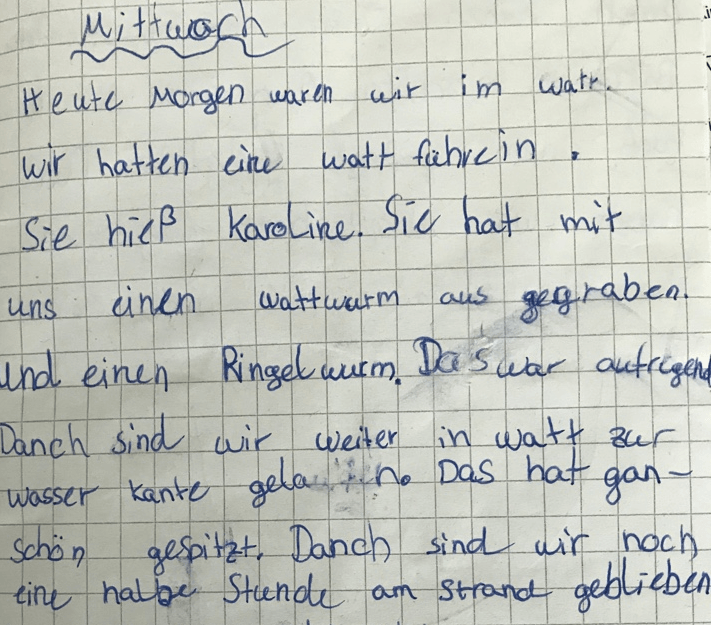 Mittwoch
Heute Morgen waren wir im watt.
wir hatten eine watt führein.
Sie hieß Karoline. Sie hat mit
uns einen wattwurm aus gegraben.
und einen Ringelwurm. Das war aufrigend
Danch sind wir weiter in watt zur
wasser kante gelaufen. Das hat gan-
schön gespitzt. Danch sind wir noch
eine halbe Stunde am Strand geblieben